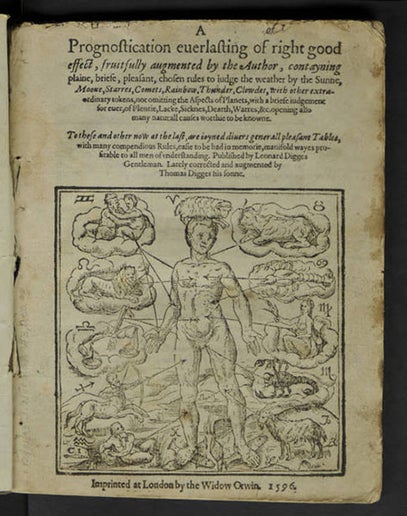 A
Prognostication euerlasting of right good
effect, fruitfully augmented by the Author, contayning
plaine, briefe, pleasant, chosen rules to iudge the weather by the Sunne,
Moone, Starres, Comets, Rainbow, Thunder, Clowdes, with other extra-
ordinary tokens, not omitting the Aspects of Planets, with a briefe iudgement
for euer, of Plentie, Lacke, Sicknes, Dearth, Warres, &c. opening also
many naturall causes worthie to be knowne.
To these and other now at the last, are ioyned diuers generall pleasant Tables,
with many compendious Rules, easie to be had in memorie, manifold wayes pro-
fitable to all men of vnderstanding. Published by Leonard Digges
Gentleman. Lately corrected and augmented by
Thomas Digges his sonne.
C.I.
Imprinted at London by the Widow Orwin. 1596.